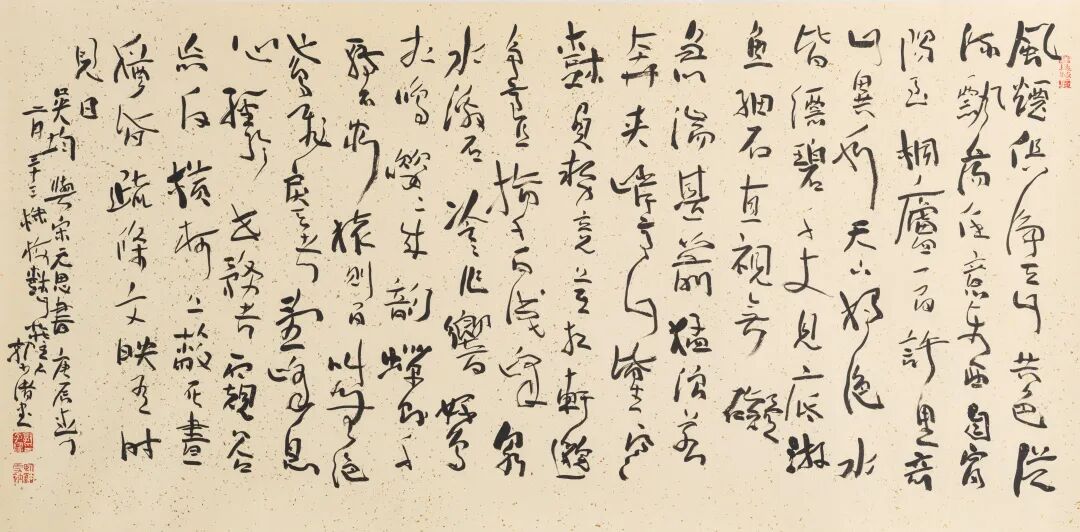 風煙俱净天山共色從
流飄蕩任意東西自富
陽至桐廬一百許里奇
山異水天下獨絶水
皆縹碧千丈見底游
魚細石直視無礙
急湍甚箭猛浪若
奔夾岸高山皆生寒
樹負勢競上互相軒邈
争高直指千百成峰泉
水激石泠泠作響好鳥
相鳴嚶嚶成韻蟬則千
轉不窮猿則百叫無絶
鳶飛戾天者望峰息
心經綸世務者窺谷
忘反橫柯上蔽在晝
猶昏疏條交映有時
見日
吴均與宋元思書庚辰
二月